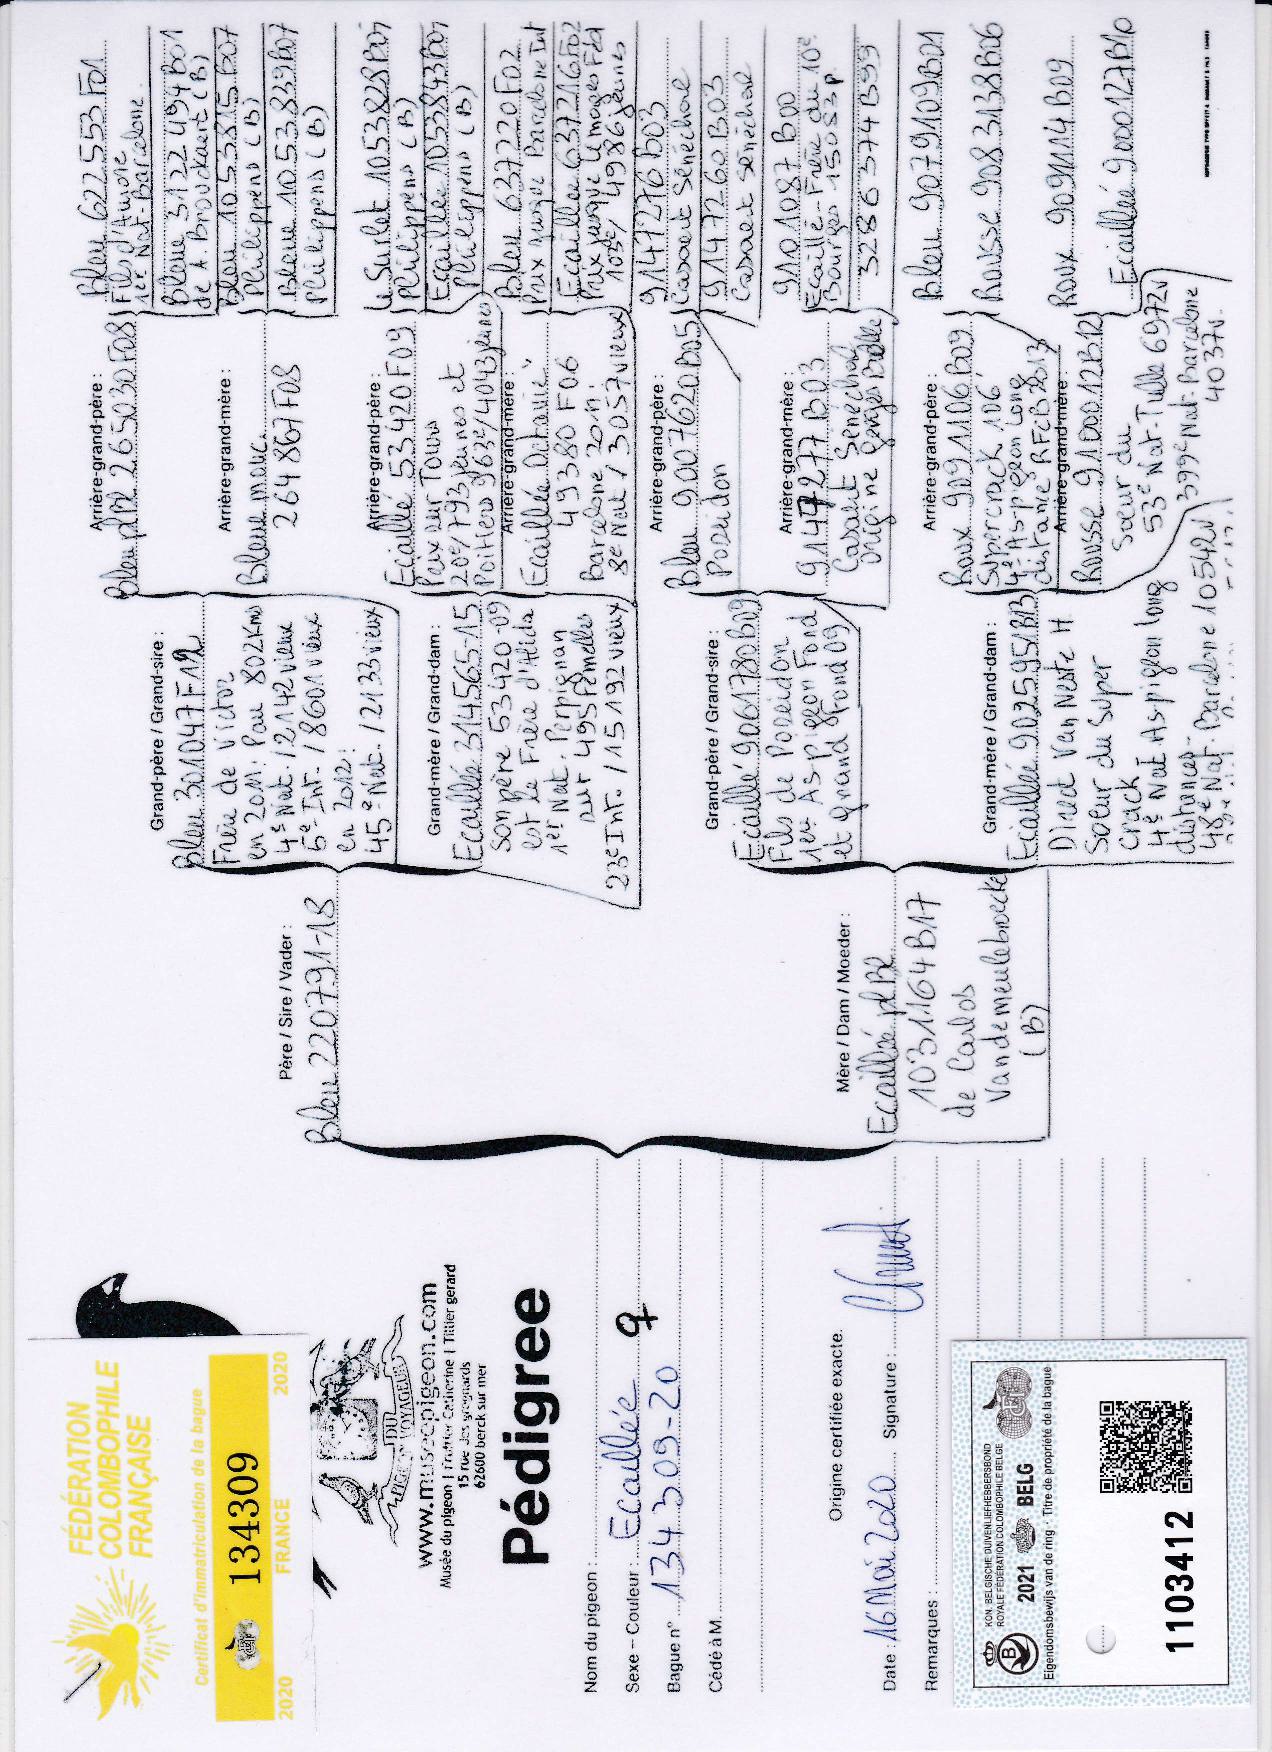 FÉDÉRATION
COLOMBOPHILE
FRANÇAISE
Certificat d'immatriculation de la bague
134309
2020 FRANCE 2020
DU
PIGEON VOYAGEUR
www.museepigeon.com
Musée du pigeon | Trattier Catherine | Tittier gerard
15 rue des
62600 berck sur mer
Pédigree
Nom du pigeon :
Sexe – Couleur : Ecaillée ♀
Bague n° 134309-20
Cédé à M.
Origine certifiée exacte.
Date : 16 Mai 2020 Signature :
Remarques :
KON. BELGISCHE DUIVENLIEFHEBBERSBOND
ROYALE FÉDÉRATION COLOMBOPHILE BELGE
2021 BELG
Eigendomsbewijs van de ring - Titre de propriété de la bague
1103412
Père / Sire / Vader :
Bleu 220791-18
Mère / Dam / Moeder :
Ecaillée pl Bl
1031164 B17
de Carlos
Vandemeulebroecke
(B)
Grand-père / Grand-sire :
Bleu 301047 F12
Frère de Victor
en 2011: Pau 802Kms
4e Nat. / 2142 vieux
6e Int. / 8601 vieux
en 2012:
45e Nat. / 2133 vieux
Grand-mère / Grand-dam :
Ecaillé 314565-15
Son père 53420-09
est le Frère d'Alida
1er Nat. Perpignan
sur 495 Femelles
23e Int. / 15192 vieux
Grand-père / Grand-sire :
Ecaillé 9061780 B09
Fils de Poseidon
1er As pigeon Fond
et grand Fond 09
Grand-mère / Grand-dam :
Ecaillé 9025951 B13
Direct Van Neste H
Soeur du Super
Crack
4e Nat As pigeon long
distances
48e Nat. Barcelone 10542v
Arrière-grand-père :
Bleu pl Bl 265030 F08
Arrière-grand-mère :
Bleu mouc.
264867 F08
Arrière-grand-père :
Ecaillé 53420 F09
Prix sur Tours
20e/793 jeunes et
Poitiers 963e/4043 jeunes
Arrière-grand-mère :
Ecaillée Octavie"
49380 F06
Barcelone 2011:
8e Nat / 3057 vieux
Arrière-grand-père :
Bleu 9007620 B05
Poseidon
Arrière-grand-mère :
9147277 B03
Casaert Sénéchal
Origine Georges Bolle
Arrière-grand-père :
Roux 9091106 B09
Supercrack 106'
4e As pigeon long
distance RFCB 2013
Arrière-grand-mère :
Rousse 9100012 B12
Soeur du
53e Nat. Tulle 6972v
399e Nat. Barcelone
4037v.
Bleu 622553 F01
Fils d'Aurore
1er Nat. Barcelone
Bleue 3122494 B01
de A. Brouckaert (B)
Bleu 1053815 B07
Philippens (B)
Bleue 1053839 B07
Philippens (B)
Le Surlet 1053828 B07
Philippens (B)
Ecaillée 1053843 B07
Philippens (B)
Bleu 637220 F02
Prix jusque Barcelone Int
Ecaillée 637216 F02
Prix jusque Limoges Féd
103e/ 4986 jeunes
9147276 B03
Casaert Sénéchal
9147260 B03
Casaert Sénéchal
9101087 B00
Ecaillé - Frère du 10e
Bourges 15053 p.
3286374 B99
Bleu 9079109 B01
Rousse 9083138 B06
Roux 9091114 B09
Ecaillée 9000127 B10